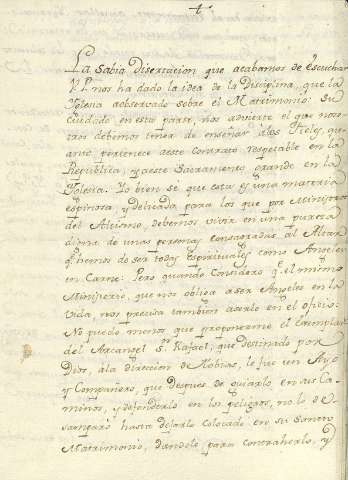 La Sabia Disertacion que acabamos de escuchar
nos ha dado la idea de la Disciplina, que la
Iglesia aobservado sobre el Matrimonio: Su
Cuidado en esta parte, nos advierte el que noso-
tros debemos tener de enseñar alos Fieles, qu-
anto pertenece aeste Contrato respetable en la
Republica, y aeste Sacramento grande en la
Iglesia. Yo bien se que esta es una materia
espinosa, y delicada para los que por Ministros
del Altisimo, debemos vivir en una pureza
digna de unas personas consagradas al Altar
q.e hemos de ser todas espirituales como Angeles
en Carne: Pero quando Considero q.e el mismo
Ministerio, que nos obliga aser Angeles en la
Vida, nos precisa tambien aserlo en el oficio:
No puedo menos que proponerme el Exemplar
del Arcangel S.n Rafael, que destinado por
Dios, ala direccion de Tobias, le fue un Ayo
y Compañero, que despues de guiarlo en sus Ca-
minos, y defenderlo en los peligros, no lo de-
samparó hasta dejarlo colocado en su Santo
Matrimonio, dandole para contraherlo, y